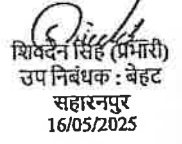 शिवदैन सिंह (प्रभारी)
उप निबंधक : बेहट
सहारनपुर
16/05/2025